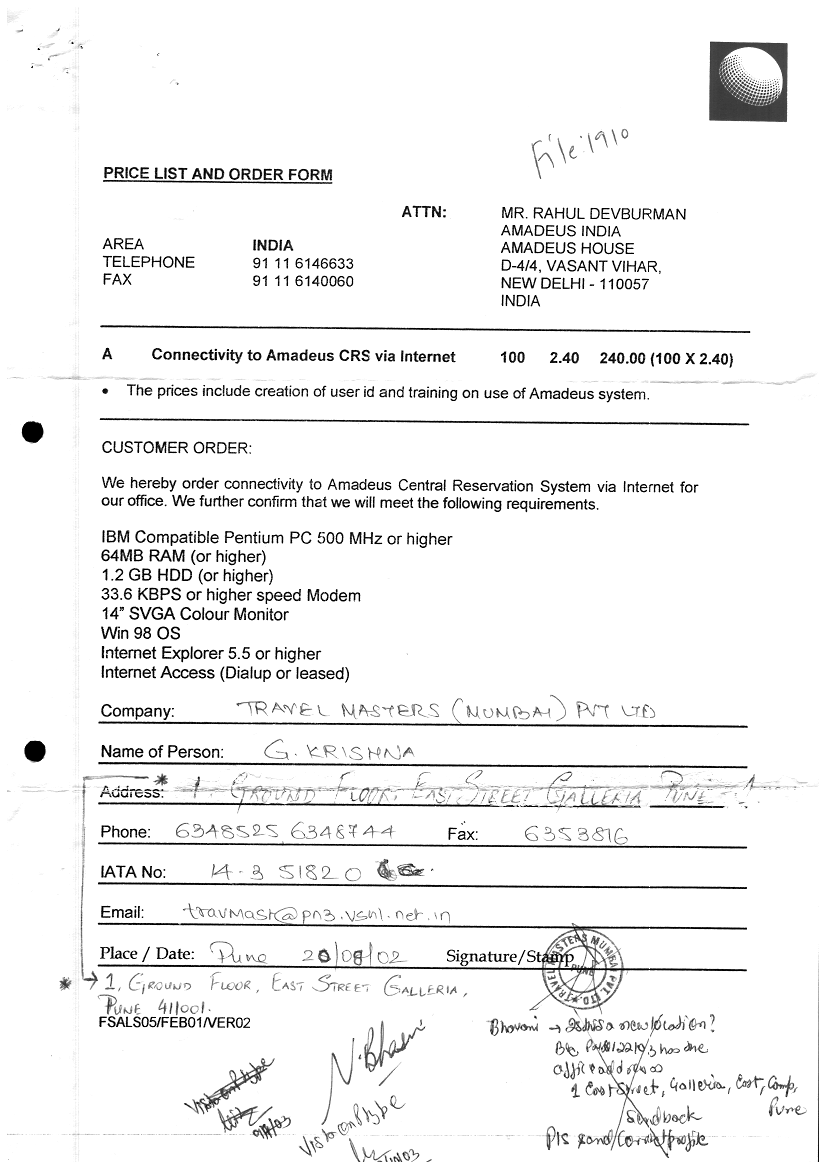 File:1910
PRICE LIST AND ORDER FORM
ATTN: MR. RAHUL DEVBURMAN
AMADEUS INDIA
AREA INDIA AMADEUS HOUSE
TELEPHONE 91 11 6146633 D-4/4, VASANT VIHAR,
FAX 91 11 6140060 NEW DELHI - 110057
INDIA
A Connectivity to Amadeus CRS via Internet 100 2.40 240.00 (100 X 2.40)
• The prices include creation of user id and training on use of Amadeus system.
CUSTOMER ORDER:
We hereby order connectivity to Amadeus Central Reservation System via Internet for
our office. We further confirm that we will meet the following requirements.
IBM Compatible Pentium PC 500 MHz or higher
64MB RAM (or higher)
1.2 GB HDD (or higher)
33.6 KBPS or higher speed Modem
14” SVGA Colour Monitor
Win 98 OS
Internet Explorer 5.5 or higher
Internet Access (Dialup or leased)
Company: TRAVEL MASTERS (MUMBAI) PVT LTD
Name of Person: G. KRISHNA
Address: * 1, GROUND FLOOR, EAST STREET GALLERIA PUNE - 1
Phone: 6348525 6348744 Fax: 6353816
IATA No: 14-3 5182 0
Email: travmast@pn3.vsnl.net.in
Place / Date: Pune 20/08/02 Signature/Stamp
TRAVEL MASTERS MUMBAI PVT. LTD. PUNE
* 1, GROUND FLOOR, EAST STREET GALLERIA,
PUNE 411001.
FSALS05/FEB01/VER02
Bhavani → Is this a new location?
has one
address
1 East Street, Galleria, East, Camp,
Pune
Send back
N. Bhasin